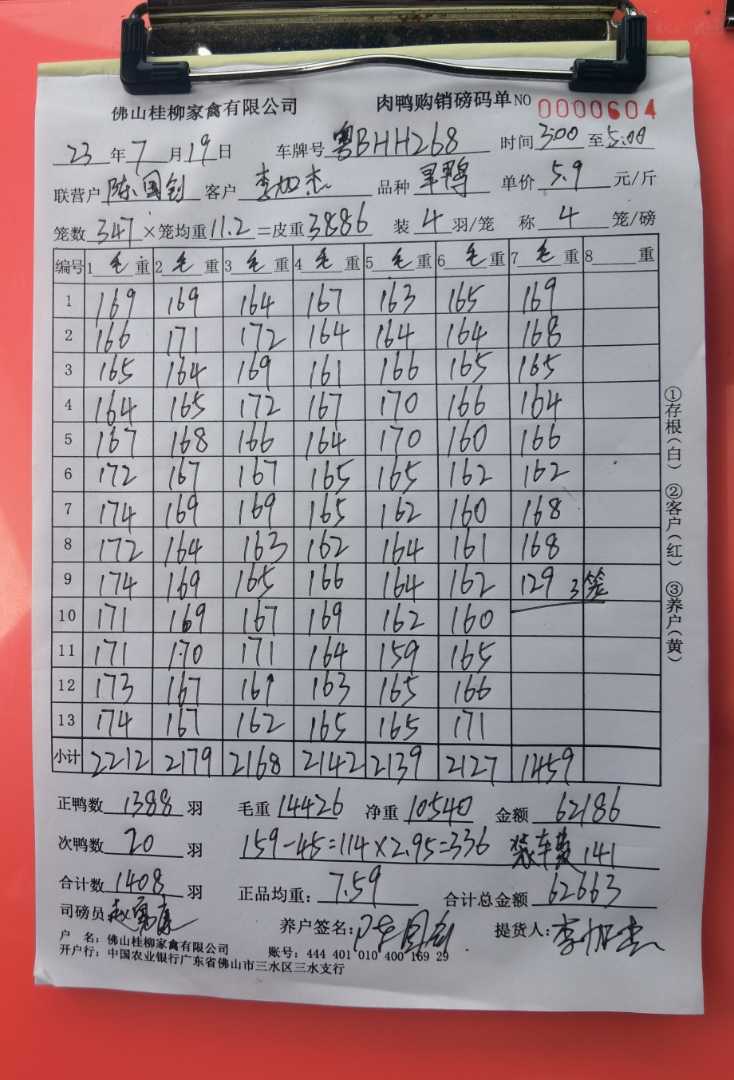 佛山桂柳家禽有限公司 肉鸭购销磅码单 NO 0000604
23 年 7 月 19 日 车牌号 粤BHH268 时间 3:00 至 5:00
联营户 陈国钊 客户 李加杰 品种 旱鸭 单价 5.9 元/斤
笼数 347 ×笼均重 11.2 =皮重 3886 装 4 羽/笼 称 4 笼/磅
编号 1 毛 重 2 毛 重 3 毛 重 4 毛 重 5 毛 重 6 毛 重 7 毛 重 8 重
1 169 169 164 167 163 165 169
2 166 171 172 164 164 164 168
3 165 164 169 161 166 165 165
4 164 165 172 167 170 166 164
5 167 168 166 164 170 160 166
6 172 167 167 165 165 162 162
7 174 169 169 165 162 160 168
8 172 164 163 162 164 161 168
9 174 169 165 166 164 162 129 3笼
10 171 169 167 169 162 160
11 171 170 171 164 159 165
12 173 167 161 163 165 166
13 174 167 162 165 165 171
小计 2212 2179 2168 2142 2139 2127 1459
正鸭数 1388 羽 毛重 14426 净重 10540 金额 62186
次鸭数 20 羽 159-45=114×2.95=336 装车费 141
合计数 1408 羽 正品均重: 7.59 合计总金额 62663
司磅员 养户签名: 陈国钊 提货人: 李加杰
户 名: 佛山桂柳家禽有限公司 账号: 444 401 010 400 169 29
开户行: 中国农业银行广东省佛山市三水区三水支行
①存根(白) ②客户(红) ③养户(黄)